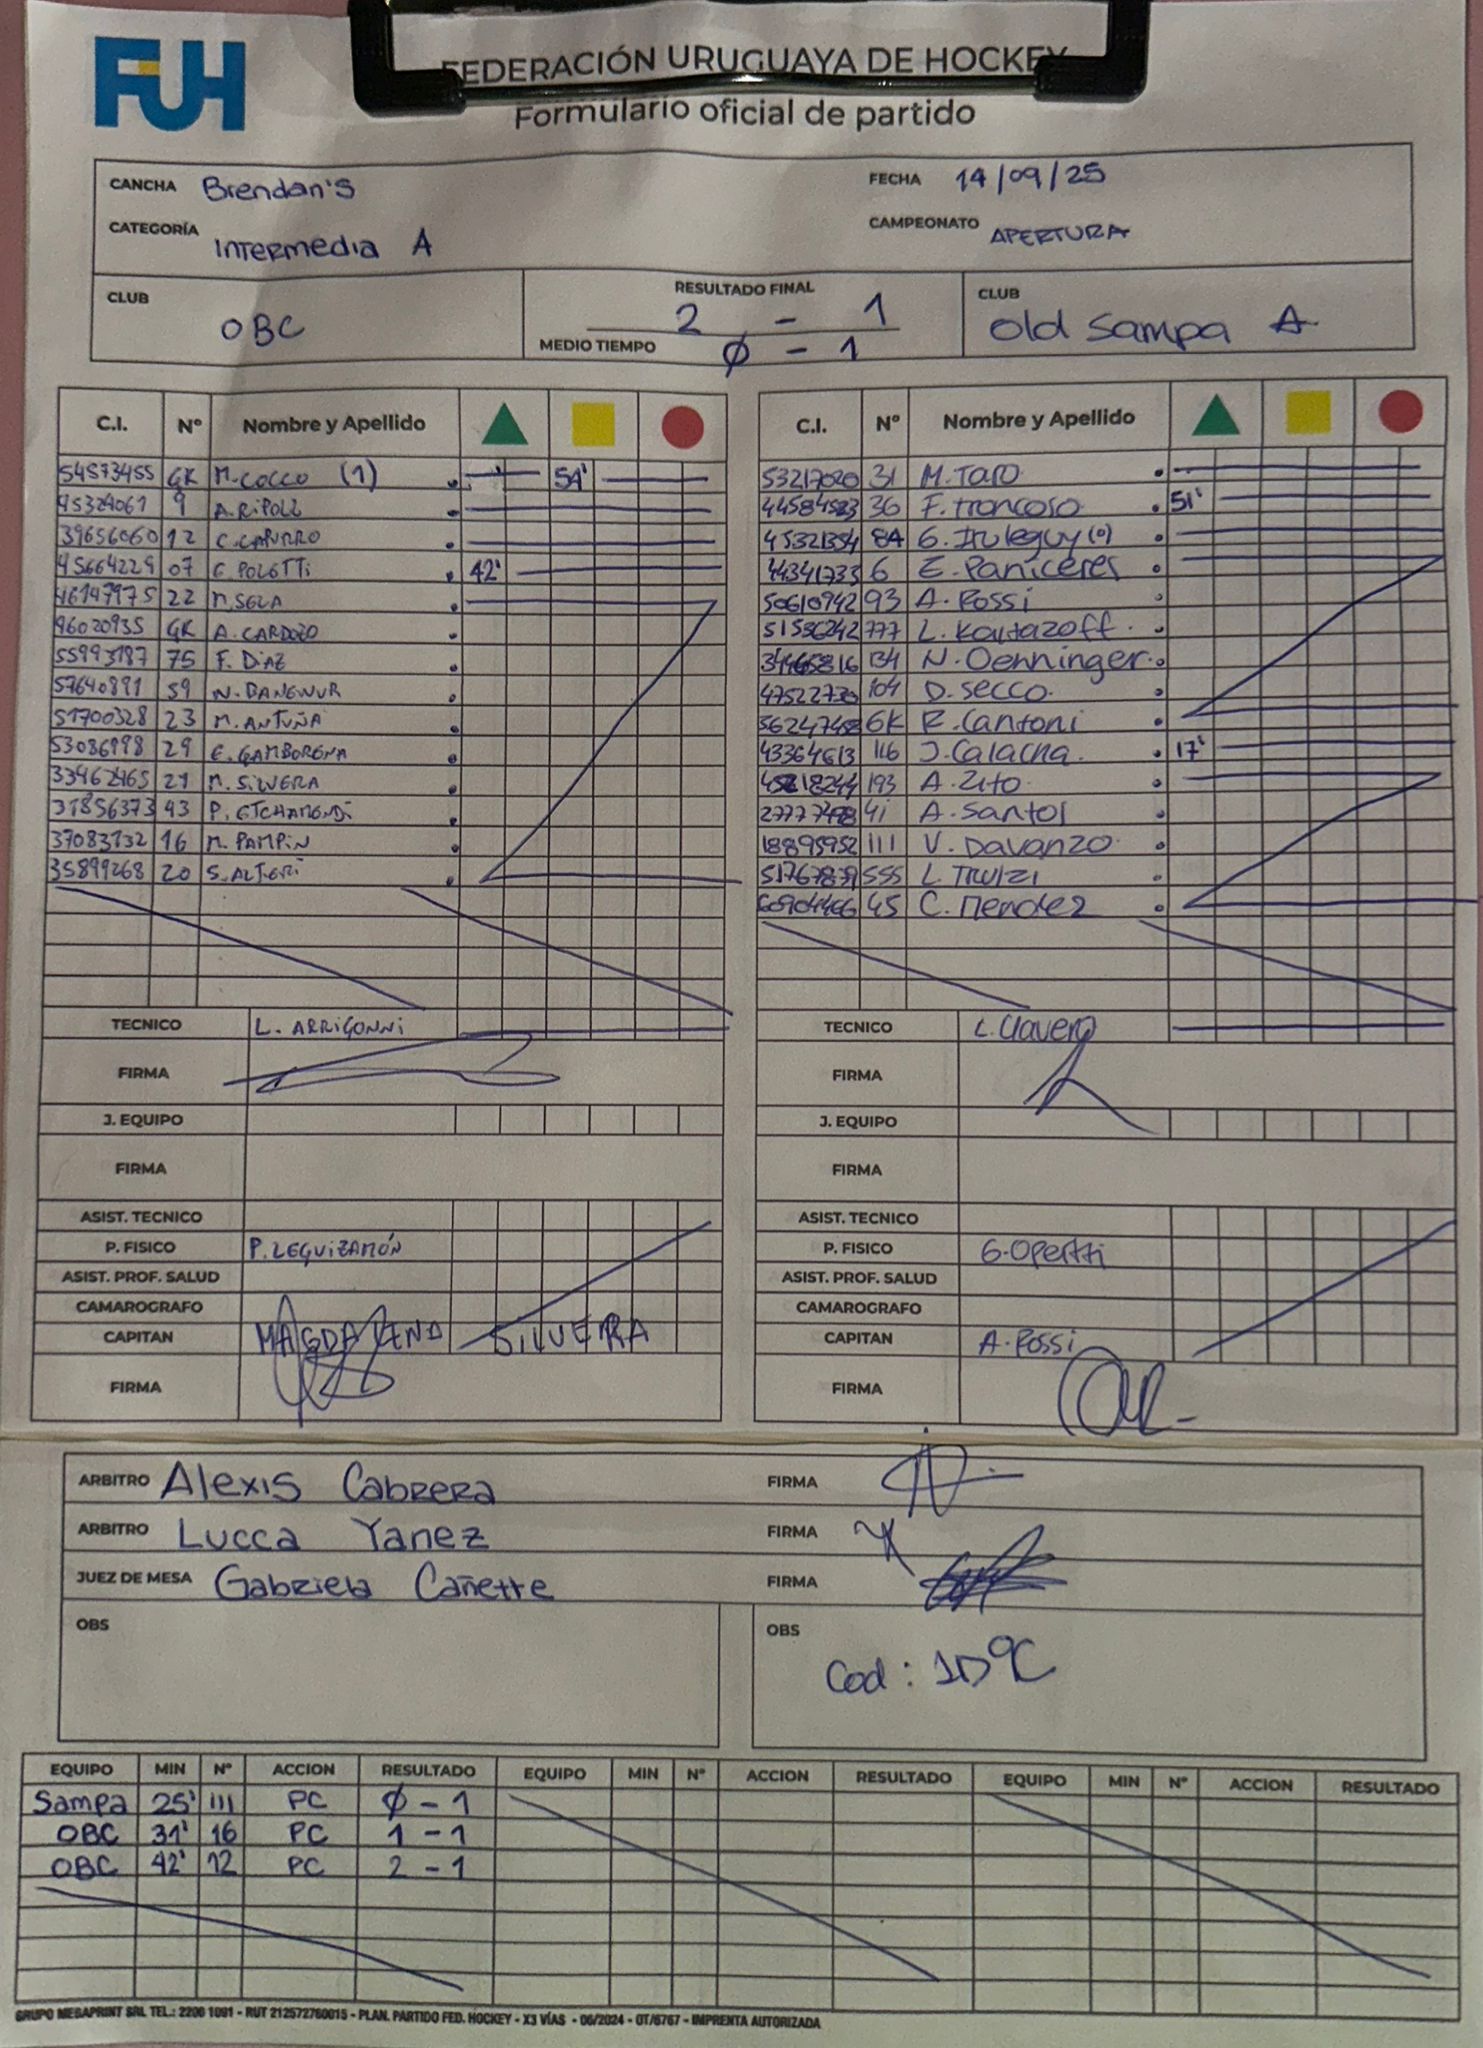 FUH
FEDERACIÓN URUGUAYA DE HOCKEY
Formulario oficial de partido
CANCHA Brendan's FECHA 14/09/25
CATEGORÍA Intermedia A CAMPEONATO APERTURA
CLUB OBC RESULTADO FINAL 2 - 1 CLUB Old Sampa A
MEDIO TIEMPO Ø - 1
C.I. Nº Nombre y Apellido
54573455 GK M. COCCO (1) 54'
45324061 9 A. RIPOLL
39656060 12 C. CAPURRO
45664229 07 C. POLETTI 42'
46147975 22 M. SELA
46020935 GK A. CARDOZO
55993187 75 F. DIAZ
57640891 59 N.
51700328 23 M. ANTUÑA
53086998 29 E. GAMBORENA
33462465 21 M. SILVERA
31856373 43 P. ETCHAMENDI
37083132 16 M. PAMPIN
35899268 20 S. ALTIERI
TECNICO L. ARRIGONNI
FIRMA
J. EQUIPO
FIRMA
ASIST. TECNICO
P. FISICO P. LEGUIZAMÓN
ASIST. PROF. SALUD
CAMAROGRAFO
CAPITAN MAGDALENA SILVEIRA
FIRMA
C.I. Nº Nombre y Apellido
53217020 31 M. Taro
44584583 36 F. Troncoso 51'
45321354 8A G. Iruleguy
44341733 6 E. Paniceres
50610942 93 A. Rossi
51536242 777 L.
134 N. Oenninger
47522730 104 D. Secco
56247488 GK R. Cantoni
43364613 116 J. Calacha 17'
193 A. Zito
27777498 41 A. Santos
18895952 111 V. Davanzo
51767879 555 L. Truizi
60904466 45 C. Mendez
TECNICO L. Clavero
FIRMA
J. EQUIPO
FIRMA
ASIST. TECNICO
P. FISICO G. Opertti
ASIST. PROF. SALUD
CAMAROGRAFO
CAPITAN A. Rossi
FIRMA
ARBITRO Alexis Cabrera FIRMA
ARBITRO Lucca Yanez FIRMA
JUEZ DE MESA Gabriela Cañette FIRMA
OBS
OBS
Cod :
EQUIPO MIN Nº ACCION RESULTADO EQUIPO MIN Nº ACCION RESULTADO EQUIPO MIN Nº ACCION RESULTADO
Sampa 25' 111 PC Ø - 1
OBC 31' 16 PC 1 - 1
OBC 42' 12 PC 2 - 1
GRUPO MEGAPRINT SRL TEL.: 2200 1091 - RUT 212572760015 - PLAN. PARTIDO FED. HOCKEY - X3 VÍAS - 06/2024 - OT/6767 - IMPRENTA AUTORIZADA